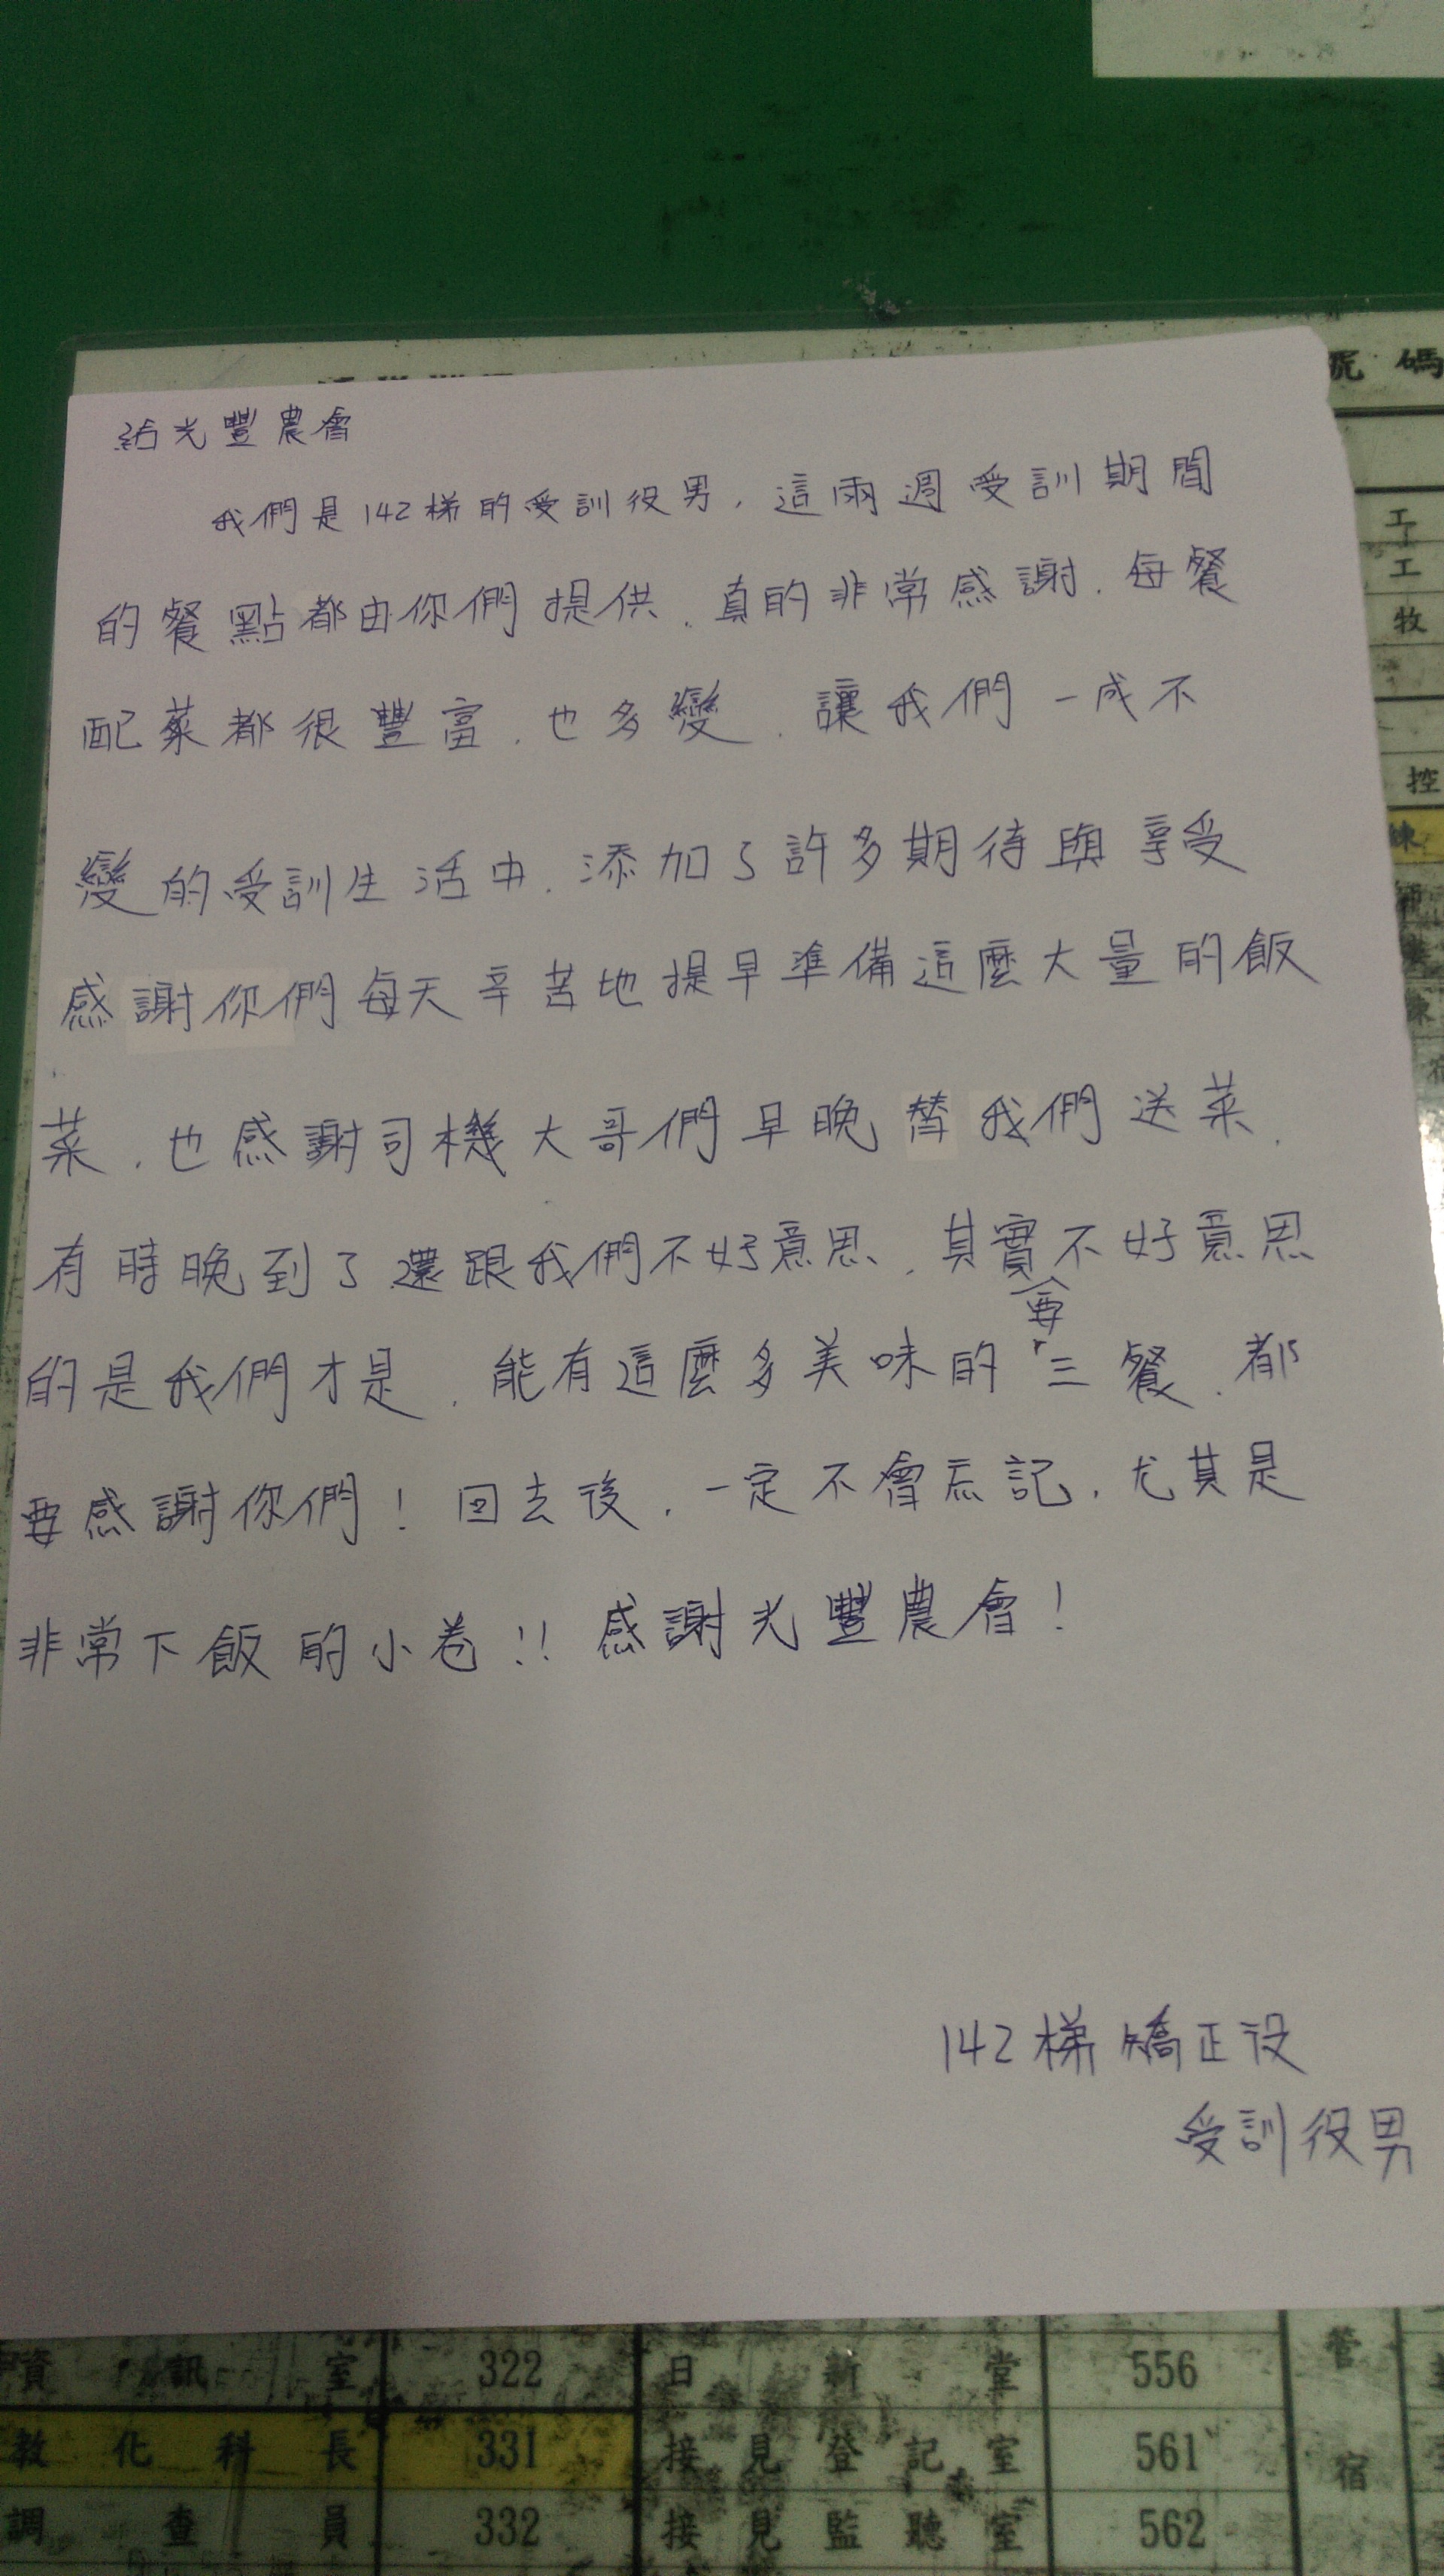 號碼
給光豐農會
我們是142梯的受訓役男，這兩週受訓期間
的餐點都由你們提供，真的非常感謝，每餐
配菜都很豐富，也多變，讓我們一成不
變的受訓生活中，添加了許多期待與享受
感謝你們每天辛苦地提早準備這麼大量的飯
菜，也感謝司機大哥們早晚替我們送菜，
有時晚到了還跟我們不好意思，其實不好意思
的是我們才是，能有這麼多美味的三餐，都
要感謝你們！回去後，一定不會忘記，尤其是
非常下飯的小卷!! 感謝光豐農會！
142梯矯正役
受訓役男
工
工
牧
控
資訊室 322 日新堂 556 管
教化科長 331 接見登記室 561 宿
調查員 332 接見監聽室 562